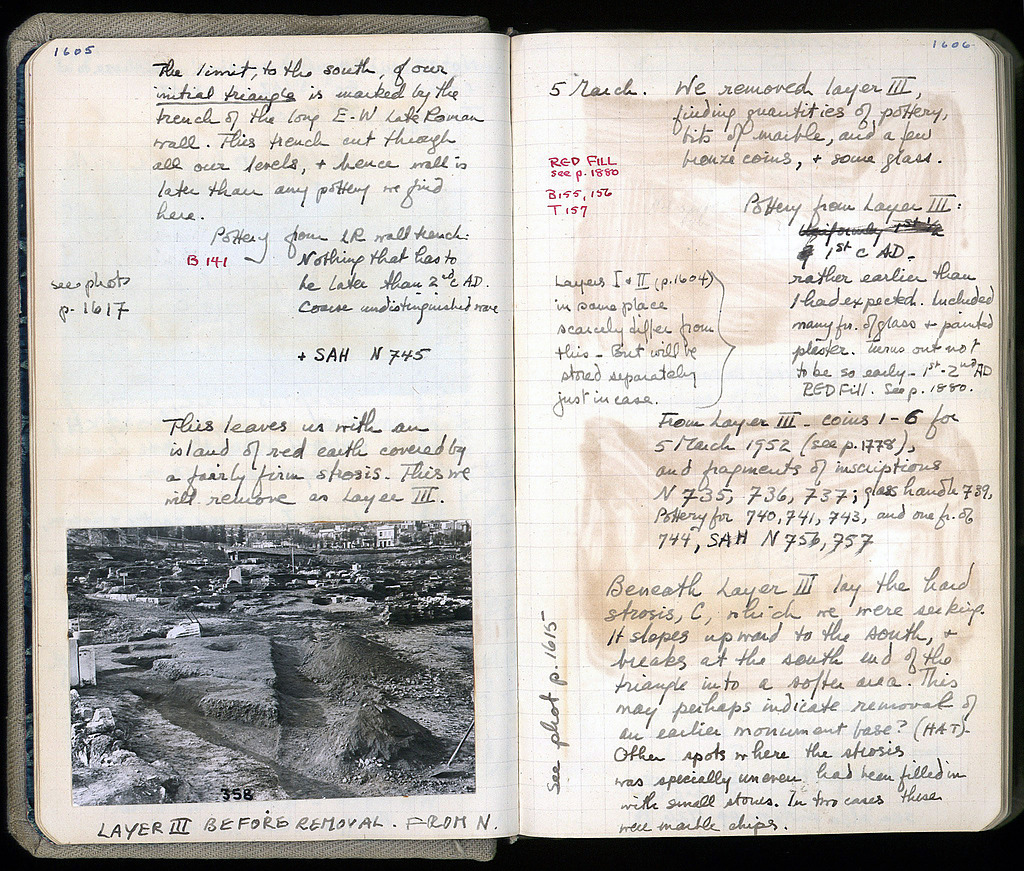 1605
The limit, to the south, of our
initial triangle is marked by the
trench of the long E-W Late Roman
wall. This trench cut through
all our levels, + hence wall is
later than any pottery we find
here.
Pottery from LR wall trench:
B 141
Nothing that has to
be later than 2nd c AD.
Coarse undistinguished ware
see photo
p. 1617
+ SAH N 745
This leaves us with an
island of red earth covered by
a fairly firm strosis. This we
will remove as Layer III.
358
LAYER III BEFORE REMOVAL. FROM N.
1606
5 March. We removed layer III,
finding quantities of pottery,
bits of marble, and a few
bronze coins, + some glass.
RED FILL
see p. 1880
B155, 156
T 157
Pottery from Layer III:
Uniformly 1st ½
1st c AD -
rather earlier than
I had expected. Included
many fr. of glass + painted
plaster. Turns out not
to be so early - 1st-2nd AD
RED Fill. See p. 1880.
Layers I + II (p. 1604)
in same place
scarcely differ from
this - But will be
stored separately
just in case.
From Layer III - coins 1-6 for
5 March 1952 (see p. 1778),
and fragments of inscriptions
N 735, 736, 737; glass handle 739,
Pottery for 740, 741, 743, and one fr. of
744, SAH N 756, 757
Beneath Layer III lay the hard
strosis, C, which we were seeking.
It slopes upward to the south, +
breaks at the south end of the
triangle into a softer area. This
may perhaps indicate removal of
an earlier monument base? (HAT)-
Other spots where the strosis
was specially uneven had been filled in
with small stones. In two cases these
were marble chips.
See phot p. 1615